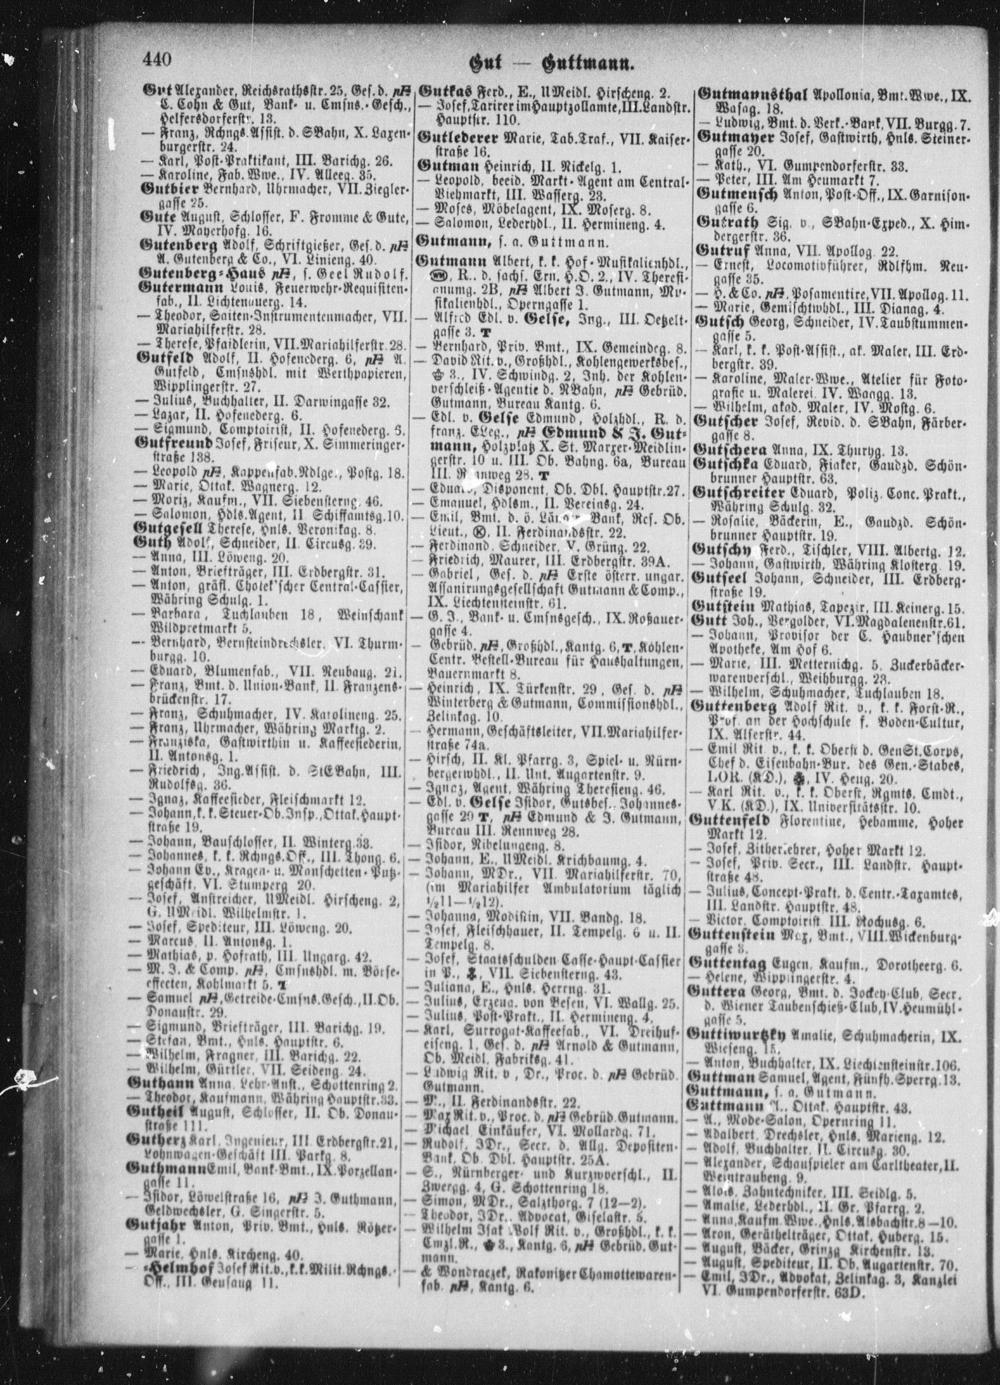 440
Gut — Guttmann.
Gut Alexander, Reichsrathsstr. 25, Ges. d.
C. Cohn & Gut, Bank- u. Cmsns.-Gesch.,
Helfersdorferstr. 13.
— Franz, Rchngs.Assist. d. SBahn, X. Laxen-
burgerstr. 24.
— Karl, Post-Praktikant, III. Barichg. 26.
— Karoline, Fab.Wwe., IV. Alleeg. 35.
Gutbier Bernhard, Uhrmacher, VII. Ziegler-
gasse 25.
Gute August, Schlosser, F. Fromme & Gute,
IV. Mayerhofg. 16.
Gutenberg Adolf, Schriftgießer, Ges. d.
A. Gutenberg & Co., VI. Linieng. 40.
Gutenberg-Haus s. Geel Rudolf.
Gutermann Louis, Feuerwehr-Requisiten-
fab., II. Lichtenauerg. 14.
— Theodor, Saiten-Instrumentenmacher, VII.
Mariahilferstr. 28.
— Therese, Pfaidlerin, VII. Mariahilferstr. 28.
Gutfeld Adolf, II. Hofenederg. 6, A.
Gutfeld, Cmsnshdl. mit Werthpapieren,
Wipplingerstr. 27.
— Julius, Buchhalter, II. Darwingasse 32.
— Lazar, II. Hofenederg. 6.
— Sigmund, Comptoirist, II. Hofenederg. 5.
Gutfreund Josef, Friseur, X. Simmeringer-
straße 138.
— Leopold Kappenfab.Ndlge., Postg. 18.
— Marie, Ottak. Wagnerg. 12.
— Moriz, Kaufm., VII. Siebensterng. 46.
— Salomon, Hdls.Agent, II. Schiffamtsg. 10.
Gutgesell Therese, Hnls. Veronikag. 8.
Guth Adolf, Schneider, II. Circusg. 39.
— Anna, III. Löweng. 20.
— Anton, Briefträger, III. Erdbergstr. 31.
— Anton, gräfl. Chotek'scher Central-Cassier,
Währing Schulg. 1.
— Barbara, Tuchlauben 18, Weinschank
Wildpretmarkt 5.
— Bernhard, Bernsteindrechsler, VI. Thurm-
burgg. 10.
— Eduard, Blumenfab., VII. Neubaug. 21.
— Franz, Bmt. d. Union-Bank, II. Franzens-
brückenstr. 17.
— Franz, Schuhmacher, IV. Karolineng. 25.
— Franz, Uhrmacher, Währing Marktg. 2.
— Franziska, Gastwirthin u. Kaffeesiederin,
II. Antonsg. 1.
— Friedrich, Ing.Assist. d. StEBahn, III.
Rudolfsg. 36.
— Ignaz, Kaffeesieder, Fleischmarkt 12.
— Johann, k. k. Steuer-Ob.Insp., Ottak. Haupt-
straße 19.
— Johann, Bauschlosser, II. Winterg. 33.
— Johannes, k. k. Rchngs.Off., III. Thong. 6.
— Johann Ev., Kragen- u. Manschetten-Putz-
geschäft, VI. Stumperg. 20.
— Josef, Anstreicher, UMeidl. Hirscheng. 2,
G. UMeidl. Wilhelmstr. 1.
— Josef, Spediteur, III. Löweng. 20.
— Marcus, II. Antonsg. 1.
— Mathias, p. Hofrath, III. Ungarg. 42.
— M. J. & Comp. Cmsnshdl. m. Börse-
effecten, Kohlmarkt 5.
— Samuel Getreide-Cmsns.Gesch., II. Ob.
Donaustr. 29.
— Sigmund, Briefträger, III. Barichg. 19.
— Stefan, Bmt., Hnls. Hauptstr. 6.
— Wilhelm, Fragner, III. Barichg. 22.
— Wilhelm, Gürtler, VII. Seideng. 24.
Guthann Anna, Lehr-Anst., Schottenring 2.
— Theodor, Kaufmann, Währing Hauptstr. 33.
Gutheil August, Schlosser, II. Ob. Donau-
straße 111.
Gutherz Karl, Ingenieur, III. Erdbergstr. 21,
Lohnwagen-Geschäft III. Parkg. 8.
Guthmann Emil, Bank-Bmt., IX. Porzellan-
gasse 11.
— Isidor, Löwelstraße 16, J. Guthmann,
Geldwechsler, G. Singerstr. 5.
Gutjahr Anton, Priv. Bmt., Hnls. Rötzer-
gasse 1.
— Marie, Hnls. Kircheng. 40.
— -Helmhof Josef Rit. v., k. k. Milit. Rchngs.-
Off., III. Geusaug. 11.
Gutkas Ferd., E., UMeidl. Hirscheng. 2.
— Josef, Tarirer im Hauptzollamte, III. Landstr.
Hauptstr. 110.
Gutlederer Marie, Tab.Traf., VII. Kaiser-
straße 16.
Gutman Heinrich, II. Nickelg. 1.
— Leopold, beeid. Markt-Agent am Central-
Viehmarkt, III. Wasserg. 23.
— Moses, Möbelagent, IX. Moserg. 8.
— Salomon, Lederhdl., II. Hermineng. 4.
Gutmann, s. a. Guttmann.
Gutmann Albert, k. k. Hof-Musikalienhdl.,
R. d. sächs. Ern. H.O. 2., IV. Theresi-
anumg. 2B, Albert J. Gutmann, Mu-
sikalienhdl., Operngasse 1.
— Alfred Edl. v. Gelse, Ing., III. Oetzelt-
gasse 3.
— Bernhard, Priv. Bmt., IX. Gemeindeg. 8.
— David Rit. v., Großhdl., Kohlengewerksbes.,
3., IV. Schwindg. 2, Inh. der Kohlen-
verschleiß-Agentie d. NBahn, Gebrüd.
Gutmann, Bureau Kantg. 6.
— Edl. v. Gelse Edmund, Holzhdl., R. d.
franz. ELeg., Edmund & J. Gut-
mann, Holzplatz X. St. Marxer-Meidlin-
gerstr. 10 u. III. Ob. Bahng. 6a, Bureau
III. Rennweg 28.
— Eduard, Disponent, Ob. Dbl. Hauptstr. 27.
— Emanuel, Hdlsm., II. Vereinsg. 24.
— Emil, Bmt. d. ö. Länder-Bank, Res. Ob.
Lieut., II. Ferdinandsstr. 22.
— Ferdinand, Schneider, V. Grüng. 22.
— Friedrich, Maurer, III. Erdbergstr. 39A.
— Gabriel, Ges. d. Erste österr. ungar.
Assanirungsgesellschaft Gutmann & Comp.,
IX. Liechtensteinstr. 61.
— G. J., Bank- u. Cmsnsgesch., IX. Roßauer-
gasse 4.
— Gebrüd. Großhdl., Kantg. 6, Kohlen-
Centr. Bestell-Bureau für Haushaltungen,
Bauernmarkt 8.
— Heinrich, IX. Türkenstr. 29, Ges. d.
Winterberg & Gutmann, Commissionshdl.,
Zelinkag. 10.
— Hermann, Geschäftsleiter, VII. Mariahilfer-
straße 74a.
— Hirsch, II. Kl. Pfarrg. 3, Spiel- u. Nürn-
bergerwhdl., II. Unt. Augartenstr. 9.
— Ignaz, Agent, Währing Theresieng. 46.
— Edl. v. Gelse Isidor, Gutsbes., Johannes-
gasse 20 Edmund & J. Gutmann,
Bureau III. Rennweg 28.
— Isidor, Nibelungeng. 8.
— Johann, E., UMeidl. Krichbaumg. 4.
— Johann, MDr., VII. Mariahilferstr. 70,
(im Mariahilfer Ambulatorium täglich
½11—½12).
— Johanna, Modistin, VII. Bandg. 18.
— Josef, Fleischhauer, II. Tempelg. 6 u. II.
Tempelg. 8.
— Josef, Staatsschulden Casse-Haupt-Cassier
in P., VII. Siebensterng. 43.
— Juliana, E., Hnls. Herrng. 31.
— Julius, Erzeug. von Besen, VI. Wallg. 25.
— Julius, Post-Prakt., II. Hermineng. 4.
— Karl, Surrogat-Kaffeefab., VI. Dreihuf-
eiseng. 1, Ges. d. Arnold & Gutmann,
Ob. Meidl. Fabriksg. 41.
— Ludwig Rit. v., Dr., Proc. d. Gebrüd.
Gutmann.
— M., II. Ferdinandsstr. 22.
— Max Rit. v., Proc. d. Gebrüd. Gutmann.
— Michael Einkäufer, VI. Mollardg. 71.
— Rudolf, JDr., Secr. d. Allg. Depositen-
Bank, Ob. Dbl. Hauptstr. 25A.
— S., Nürnberger- und Kurzwverschl., II.
Zwergg. 4, G. Schottenring 18.
— Simon, MDr., Salzthorg. 7 (12—2).
— Theodor, JDr., Advocat, Giselastr. 5.
— Wilhelm Isak Wolf Rit. v., Großhdl., k. k.
Cmzl.R., 3., Kantg. 6, Gebrüd. Gut-
mann.
— & Wondraczek, Rakonitzer Chamottewaren-
fab. Kantg. 6.
Gutmannsthal Apollonia, Bmt.Wwe., IX.
Wasag. 18.
— Ludwig, Bmt. d. Verk.-Bank, VII. Burgg. 7.
Gutmayer Josef, Gastwirth, Hnls. Steiner-
gasse 20.
— Kath., VI. Gumpendorferstr. 33.
— Peter, III. Am Heumarkt 7.
Gutmensch Anton, Post-Off., IX. Garnison-
gasse 6.
Gutrath Sig. v., SBahn-Exped., X. Him-
bergerstr. 36.
Gutruf Anna, VII. Apollog. 22.
— Ernest, Locomotivführer, Rdlfhm. Neu-
gasse 35.
— H. & Co. Posamentire, VII. Apollog. 11.
— Marie, Gemischtwhdl., III. Dianag. 4.
Gutsch Georg, Schneider, IV. Taubstummen-
gasse 5.
— Karl, k. k. Post-Assist., ak. Maler, III. Erd-
bergstr. 39.
— Karoline, Maler-Wwe., Atelier für Foto-
grafie u. Malerei, IV. Waagg. 13.
— Wilhelm, akad. Maler, IV. Mostg. 6.
Gutscher Josef, Revid. d. SBahn, Färber-
gasse 8.
Gutschera Anna, IX. Thuryg. 13.
Gutschka Eduard, Fiaker, Gaudzd. Schön-
brunner Hauptstr. 63.
Gutschreiter Eduard, Poliz. Conc. Prakt.,
Währing Schulg. 32.
— Rosalie, Bäckerin, E., Gaudzd. Schön-
brunner Hauptstr. 19.
Gutschy Ferd., Tischler, VIII. Albertg. 12.
— Johann, Gastwirth, Währing Klosterg. 19.
Gutseel Johann, Schneider, III. Erdberg-
straße 19.
Gutstein Mathias, Tapezir, III. Keinerg. 15.
Gutt Joh., Vergolder, VI. Magdalenenstr. 61.
— Johann, Provisor der C. Haubner'schen
Apotheke, Am Hof 6.
— Marie, III. Metternichg. 5, Zuckerbäcker-
warenverschl., Weihburgg. 23.
— Wilhelm, Schuhmacher, Tuchlauben 18.
Guttenberg Adolf Rit. v., k. k. Forst-R.,
Prof. an der Hochschule f. Boden-Cultur,
IX. Alserstr. 44.
— Emil Rit. v., k. k. Oberst d. GenSt.Corps,
Chef d. Eisenbahn-Bur. des Gen.-Stabes,
LOR. (KD.), IV. Heug. 20.
— Karl Rit. v., k. k. Oberst, Rgmts. Cmdt.,
V.K. (KD.), IX. Universitätsstr. 10.
Guttenfeld Florentine, Hebamme, Hoher
Markt 12.
— Josef, Zitherlehrer, Hoher Markt 12.
— Josef, Priv. Secr., III. Landstr. Haupt-
straße 48.
— Julius, Concept-Prakt. d. Centr.-Taxamtes,
III. Landstr. Hauptstr. 48.
— Victor, Comptoirist III. Rochusg. 6.
Guttenstein Max, Bmt., VIII. Wickenburg-
gasse 3.
Guttentag Eugen, Kaufm., Dorotheerg. 6.
— Helene, Wipplingerstr. 4.
Guttera Georg, Bmt. d. Jockey-Club, Secr.
d. Wiener Taubenschieß-Club, IV. Heumühl-
gasse 5.
Guttiwurtzky Amalie, Schuhmacherin, IX.
Wieseng. 15.
— Anton, Buchhalter, IX. Liechtensteinstr. 106.
Guttman Samuel, Agent, Fünfh. Sperrg. 13.
Guttmann, s. a. Gutmann.
Guttmann A., Ottak. Hauptstr. 43.
— A., Mode-Salon, Opernring 11.
— Adalbert, Drechsler, Hnls. Marieng. 12.
— Adolf, Buchhalter, II. Circusg. 30.
— Alexander, Schauspieler am Carltheater, II.
Weintraubeng. 9.
— Alois, Zahntechniker, III. Seidlg. 5.
— Amalie, Lederhdl., II. Gr. Pfarrg. 2.
— Anna, Kaufm.Wwe., Hnls. Alsbachstr. 8—10.
— Aron, Geräthelträger, Ottak. Huberg. 15.
— August, Bäcker, Grinzg. Kirchenstr. 13.
— August, Spediteur, II. Ob. Augartenstr. 70.
— Emil, JDr., Advokat, Zelinkag. 3, Kanzlei
VI. Gumpendorferstr. 63D.